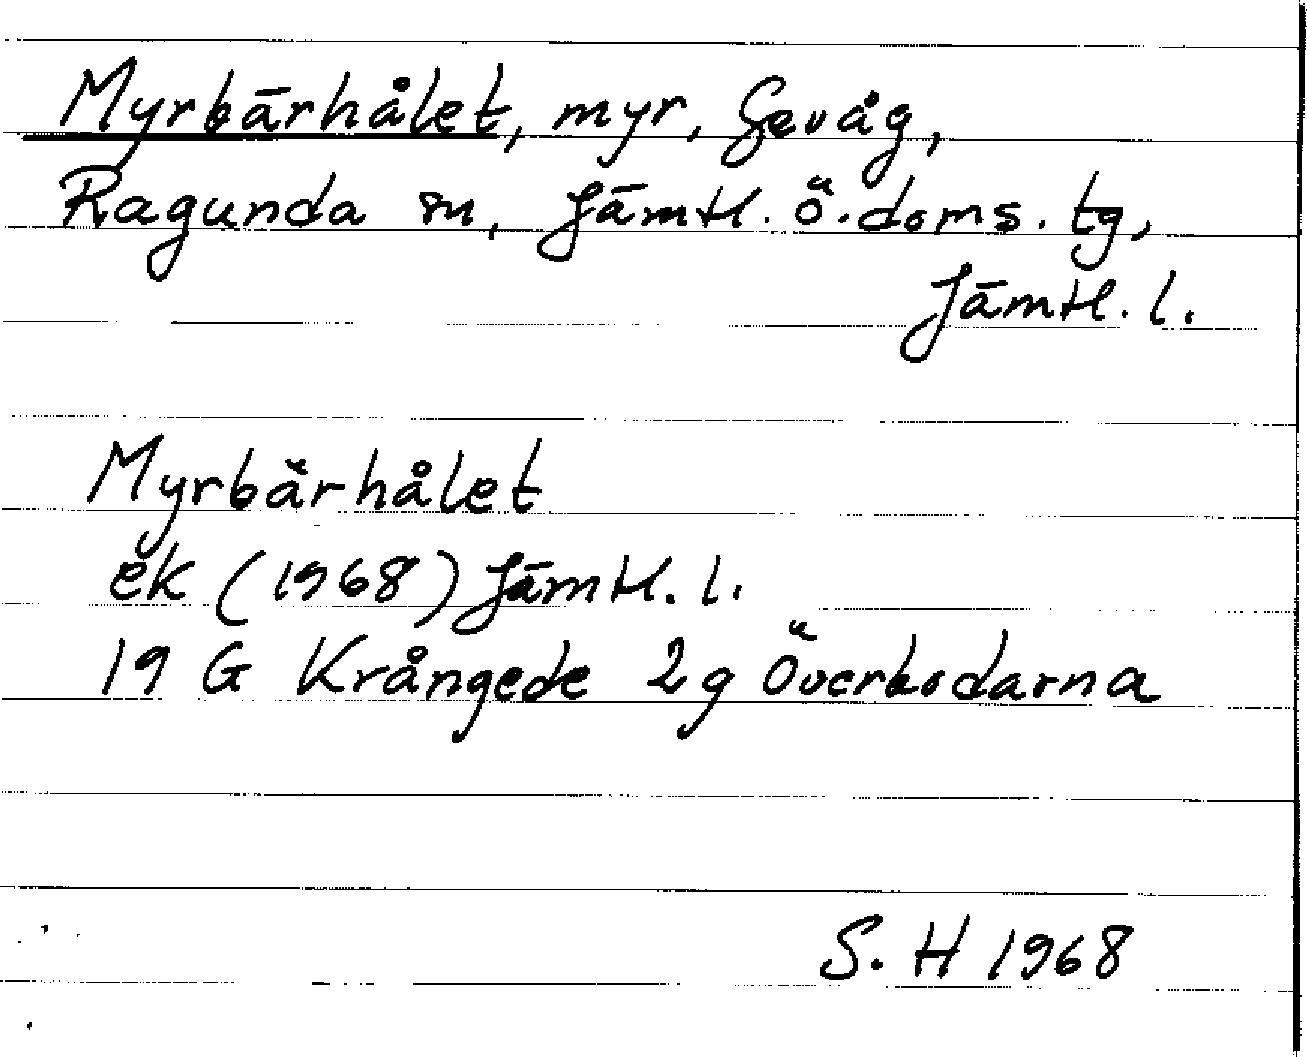 Myrbärhålet, myr, Gevåg,
Ragunda sn, Jämtl. ö. doms. tg,
Jämtl. l.
Myrbärhålet
ek (1968) Jämtl. l.
19 G Krångede 2g Överbodarna
S. H 1968